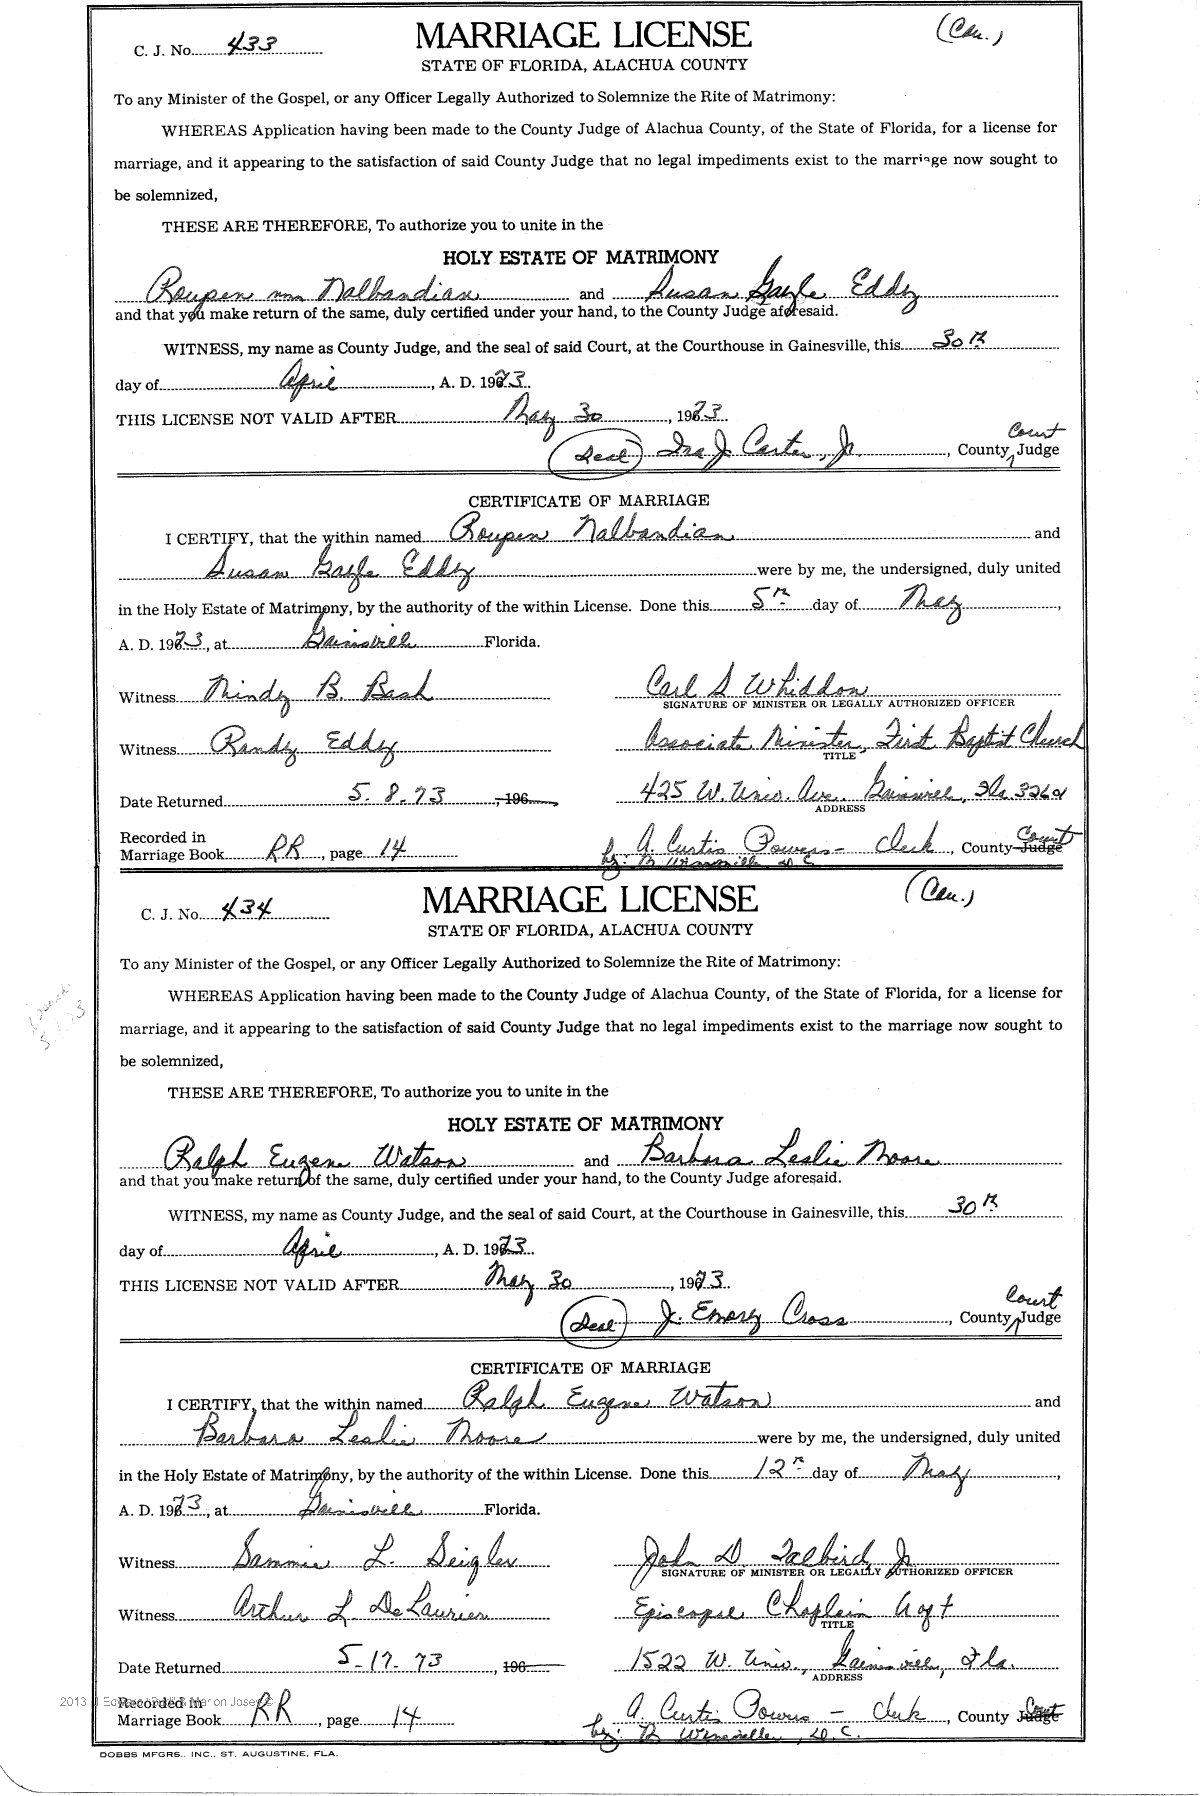 C. J. No. 433
(Cau.)
MARRIAGE LICENSE
STATE OF FLORIDA, ALACHUA COUNTY
To any Minister of the Gospel, or any Officer Legally Authorized to Solemnize the Rite of Matrimony:
WHEREAS Application having been made to the County Judge of Alachua County, of the State of Florida, for a license for
marriage, and it appearing to the satisfaction of said County Judge that no legal impediments exist to the marriage now sought to
be solemnized,
THESE ARE THEREFORE, To authorize you to unite in the
HOLY ESTATE OF MATRIMONY
Roupen nmn Nalbandian and Susan Gayle Eddy
and that you make return of the same, duly certified under your hand, to the County Judge aforesaid.
WITNESS, my name as County Judge, and the seal of said Court, at the Courthouse in Gainesville, this 30th
day of April, A. D. 1973.
THIS LICENSE NOT VALID AFTER May 30, 1973.
(Seal) Ira J. Carter, Jr., County Court Judge
CERTIFICATE OF MARRIAGE
I CERTIFY, that the within named Roupen Nalbandian and
Susan Gayle Eddy were by me, the undersigned, duly united
in the Holy Estate of Matrimony, by the authority of the within License. Done this 5th day of May,
A. D. 1973, at Gainesville Florida.
Witness Mindy B. Bash Carl S Whiddon
SIGNATURE OF MINISTER OR LEGALLY AUTHORIZED OFFICER
Witness Randy Eddy Associate Minister, First Baptist Church
TITLE
Date Returned 5. 8. 73, 196 425 W. Univ. Ave. Gainesville, Fla. 32601
ADDRESS
Recorded in
Marriage Book RR, page 14 A. Curtis Powers - Clerk, County Judge Court
by: D. C.
C. J. No. 434
(Cau.)
MARRIAGE LICENSE
STATE OF FLORIDA, ALACHUA COUNTY
To any Minister of the Gospel, or any Officer Legally Authorized to Solemnize the Rite of Matrimony:
WHEREAS Application having been made to the County Judge of Alachua County, of the State of Florida, for a license for
marriage, and it appearing to the satisfaction of said County Judge that no legal impediments exist to the marriage now sought to
be solemnized,
THESE ARE THEREFORE, To authorize you to unite in the
HOLY ESTATE OF MATRIMONY
Ralph Eugene Watson and Barbara Leslie Moore
and that you make return of the same, duly certified under your hand, to the County Judge aforesaid.
WITNESS, my name as County Judge, and the seal of said Court, at the Courthouse in Gainesville, this 30th
day of April, A. D. 1973.
THIS LICENSE NOT VALID AFTER May 30, 1973.
(Seal) J. Emory Cross, County Court Judge
CERTIFICATE OF MARRIAGE
I CERTIFY, that the within named Ralph Eugene Watson and
Barbara Leslie Moore were by me, the undersigned, duly united
in the Holy Estate of Matrimony, by the authority of the within License. Done this 12th day of May,
A. D. 1973, at Gainesville Florida.
Witness Sammie L. Seigler John D. Talbird, Jr
SIGNATURE OF MINISTER OR LEGALLY AUTHORIZED OFFICER
Witness Arthur L. DeLaurier Episcopal Chaplain U of F
TITLE
Date Returned 5-17-73, 196 1522 W. Univ., Gainesville, Fla.
ADDRESS
Recorded in
Marriage Book RR, page 14 A. Curtis Powers - Clerk, County Judge Court
by: D. C.
DOBBS MFGRS., INC., ST. AUGUSTINE, FLA.